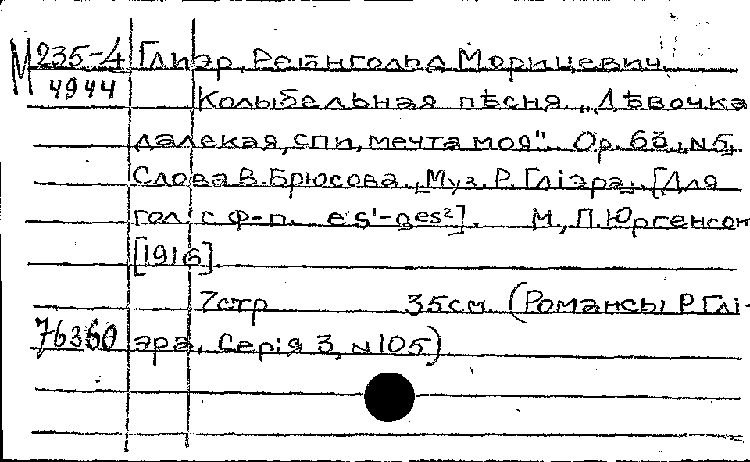 М 235-4 Глиэр, Рейнгольд Морицевич.
4944 Колыбельная пѣсня „Дѣвочка
далекая, спи, мечта моя". Ор. 63, №5.
Слова В. Брюсова. Муз. Р. Глiэра. [Для
гол. с ф-п. es¹-ges²]. М., П. Юргенсон
[1916].
7 стр. 35 см. (Романсы Р. Глi-
76360 эра. Серiя 3, №105)